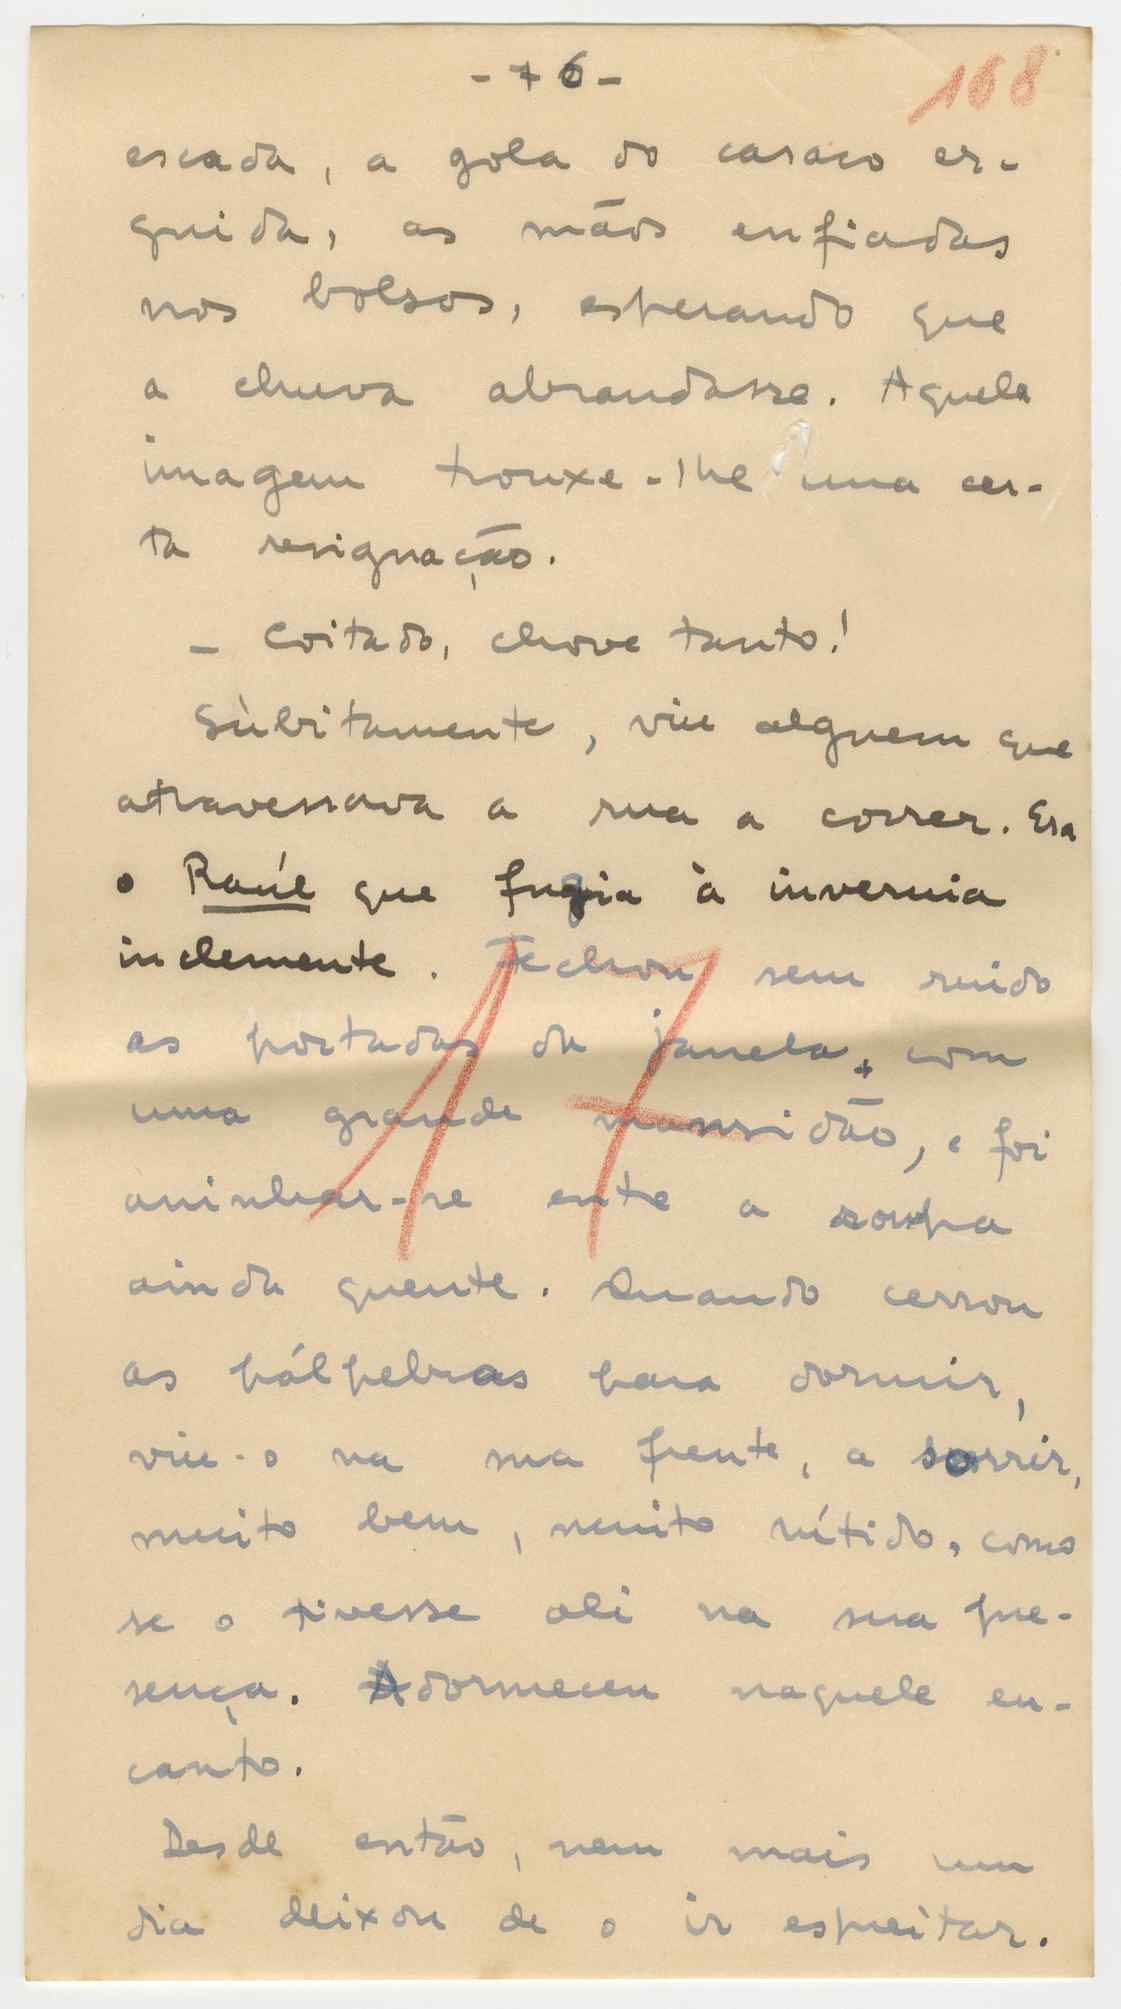 - 76 - 168
escada, a gola do casaco er-
guida, as mãos enfiadas
nos bolsos, esperando que
a chuva abrandasse. Aquela
imagem trouxe-lhe uma cer-
ta resignação.
- Coitado, chove tanto!
Sùbitamente, viu alguem que
atravessava a rua a correr. Era
o Raúl que fugia à invernia
inclemente. Fechou sem ruido
as portadas da janela, com
uma grande mansidão, e foi
aninhar-se entre a roupa
ainda quente. Quando cerrou
as pálpebras para dormir,
viu-o na sua frente, a sorrir,
muito bem, muito nítido, como
se o tivesse ali na sua pre-
sença. Adormeceu naquele en-
canto.
Desde então, nem mais um
dia deixou de o ir espreitar.
17